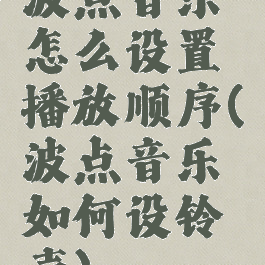 波点音乐
怎么设置
播放顺序(
波点音乐
如何设铃
声)